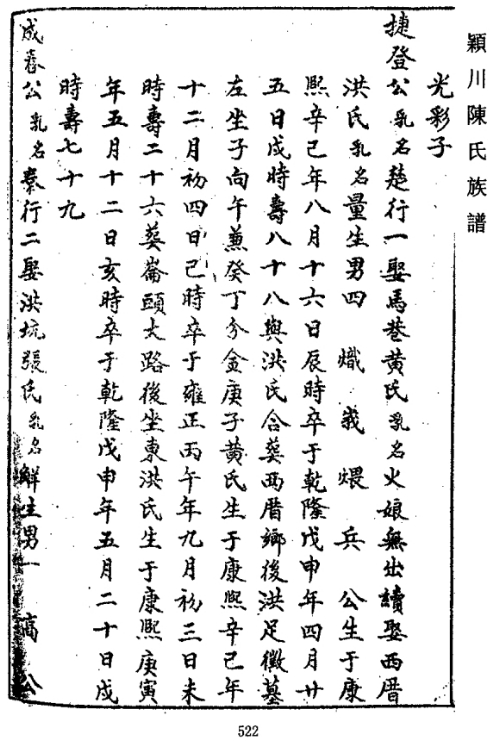 穎川陳氏族譜
光彩子
捷登公乳名楚行一娶馬巷黃氏乳名火娘無出續娶西厝
洪氏乳名量生男四 熾 峩 煨 兵 公生于康
熙辛巳年八月十六日辰時卒于乾隆戊申年四月廿
五日戌時壽八十八與洪氏合葬西厝鄉後洪足徵墓
左坐子向午兼癸丁分金庚子黃氏生于康熙辛巳年
十二月初四日巳時卒于雍正丙午年九月初三日未
時壽二十六葬崙頭大路後坐東洪氏生于康熙庚寅
年五月十二日亥時卒于乾隆戊申年五月二十日戌
時壽七十九
成春公乳名奏行二娶洪坑張氏乳名鮮生男一 高 公
522